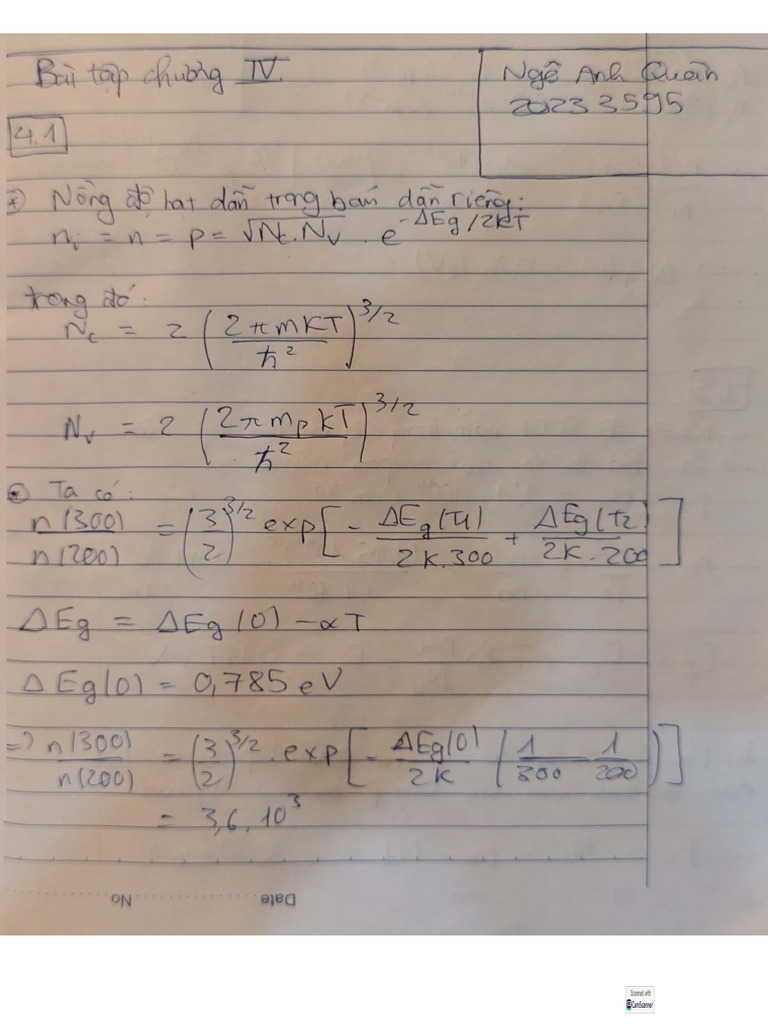 Bài tập chương IV.
Ngô Anh Quân
20233595
4.1
* Nồng độ hạt dẫn trong bán dẫn riêng:
n_i = n = p = √(N_c.N_v) . e^(-ΔEg/2KT)
trong đó:
N_c = 2 (2πmKT/ħ²)^(3/2)
N_v = 2 (2πm_p kT/ħ²)^(3/2)
* Ta có:
n(300)/n(200) = (3/2)^(3/2) exp[- ΔEg(T1)/2K.300 + ΔEg(T2)/2K.200]
ΔEg = ΔEg(0) - αT
ΔEg(0) = 0,785 eV
=> n(300)/n(200) = (3/2)^(3/2) . exp[- ΔEg(0)/2K (1/300 - 1/200)]
= 3,6.10³
Date No
Scanned with
CamScanner